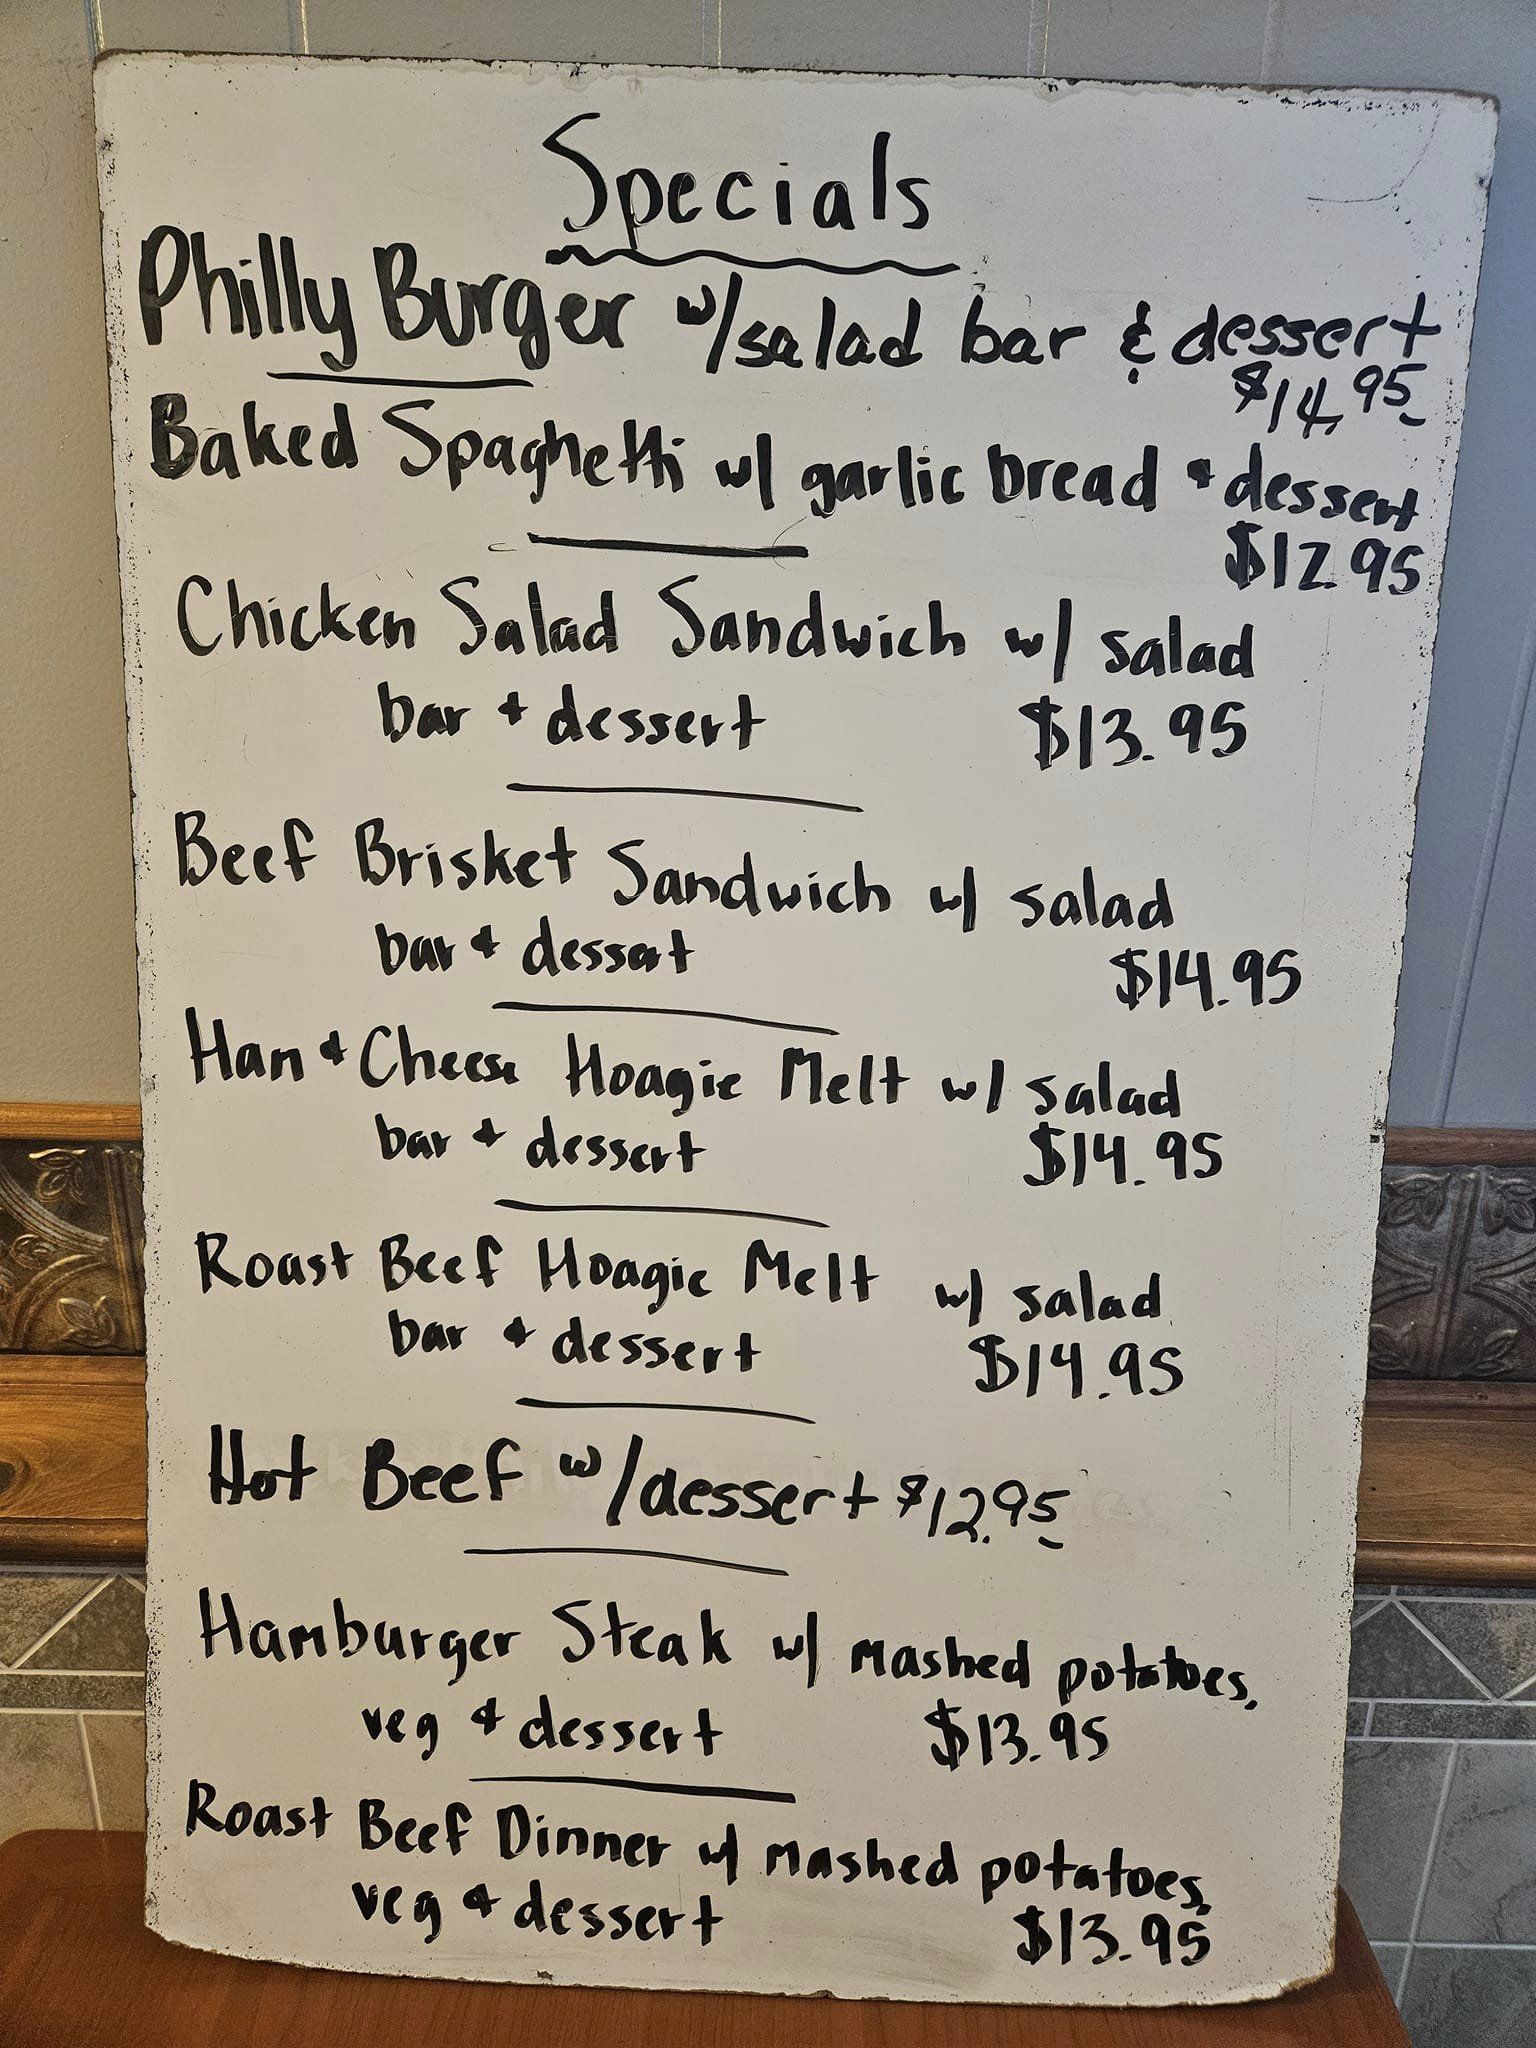 Specials
Philly Burger w/salad bar & dessert
$14.95
Baked Spaghetti w/ garlic bread & dessert
$12.95
Chicken Salad Sandwich w/ salad
bar & dessert $13.95
Beef Brisket Sandwich w/ salad
bar & dessert $14.95
Han & Cheese Hoagie Melt w/ salad
bar & dessert $14.95
Roast Beef Hoagie Melt w/ salad
bar & dessert $14.95
Hot Beef w/dessert $12.95
Hamburger Steak w/ mashed potatoes,
veg & dessert $13.95
Roast Beef Dinner w/ mashed potatoes,
veg & dessert $13.95